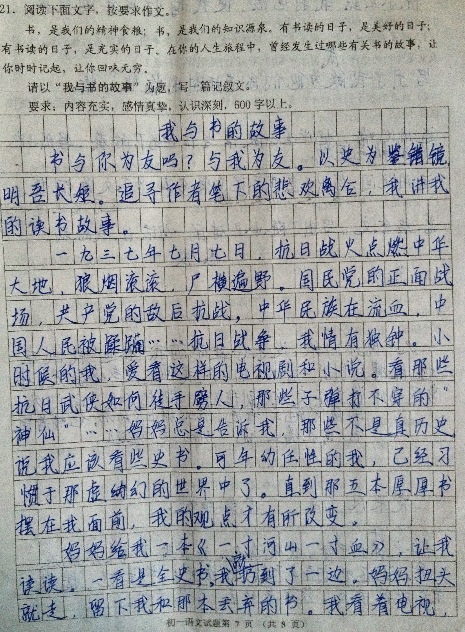 21. 阅读下面文字，按要求作文。
书，是我们的精神食粮；书，是我们的知识源泉。有书读的日子，是美好的日子；
有书读的日子，是充实的日子。在你的人生旅程中，曾经发生过哪些有关书的故事，让
你时时记起，让你回味无穷。
请以“我与书的故事”为题，写一篇记叙文。
要求：内容充实，感情真挚，认识深刻，600字以上。
我与书的故事
书与你为友吗？与我为友。以史为镜
明吾长短。追寻作者笔下的悲欢离合，我讲我
的读书故事。
一九三七年七月七日，抗日战火点燃中华
大地，狼烟滚滚，尸横遍野。国民党的正面战
场，共产党的敌后抗战，中华民族在流血，中
国人民被蹂躏……抗日战争，我情有独钟。小
时候的我，爱看这样的电视剧和小说。看那些
抗日武侠如何徒手劈人，那些子弹打不穿的“
神仙”……妈妈总是告诉我，那些不是真历史
说我应该看些史书。可年幼任性的我，已经习
惯于那虚幻的世界中了。直到那五本厚厚书
摆在我面前，我的观点才有所改变。
妈妈给我一本《一寸河山一寸血》，让我
读读。一看是全史书，我扔到了一边。妈妈扭头
就走，留下我和那本丢弃的书。我看着电视，
初一语文试题第 7 页 （共 8 页）